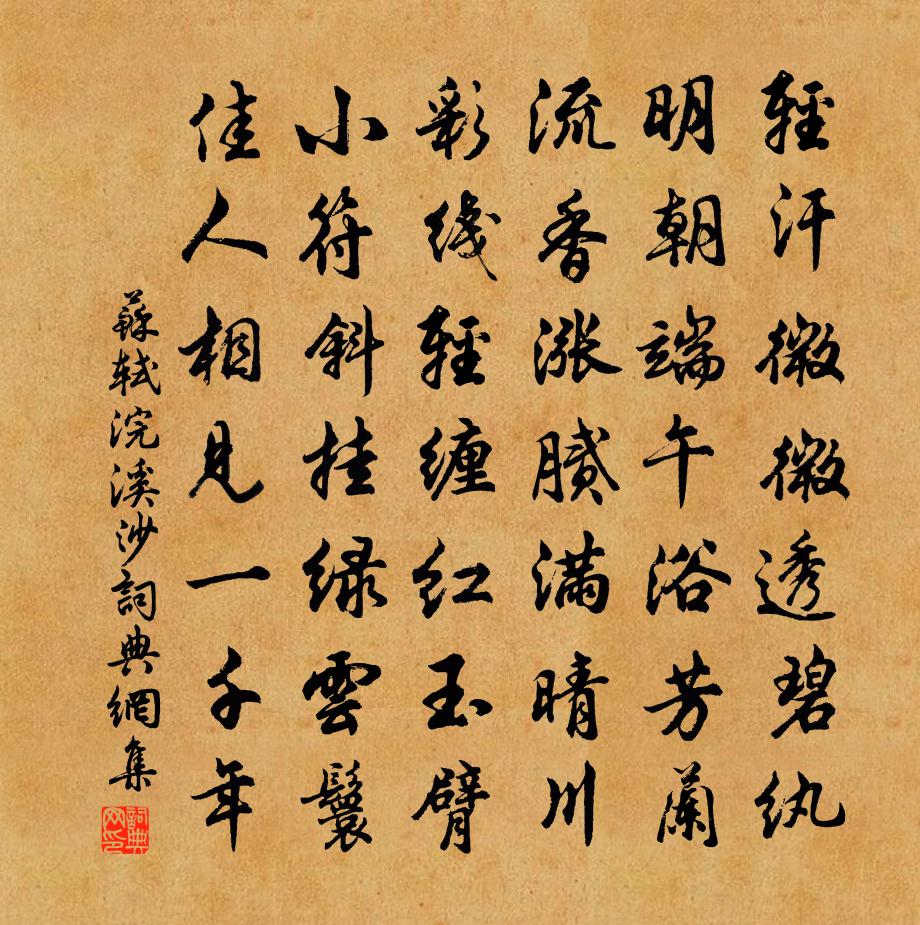 輕汗微微透碧紈
明朝端午浴芳蘭
流香漲膩滿晴川
彩线輕缠红玉臂
小符斜挂绿雲鬟
佳人相見一千年
蘇轼浣溪沙詞典網集
詞典网印